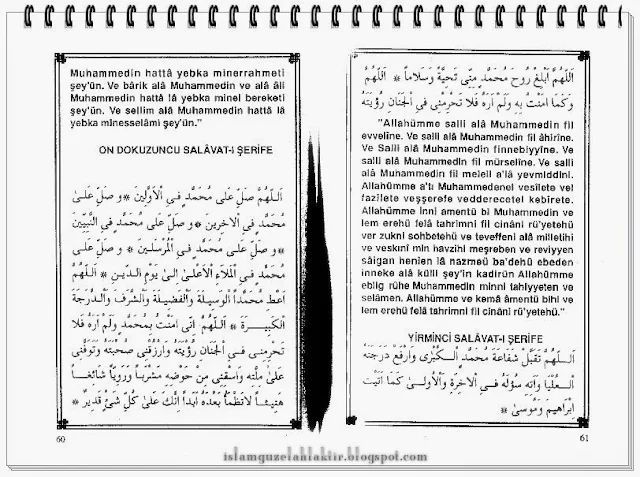 Muhammedin hattâ yebka minerrahmeti
şey'ün. Ve bârik alâ Muhammedin ve alâ âli
Muhammedin hattâ lâ yebka minel bereketi
şey'ün. Ve sellim alâ Muhammedin hattâ lâ
yebka minesselâmi şey'ün."
ON DOKUZUNCU SALÂVAT-I ŞERİFE
اَللّٰهُمَّ صَلِّ عَلٰى مُحَمَّدٍ فِي الْاَوَّلِينَ * وَ صَلِّ عَلٰى
مُحَمَّدٍ فِي الْاٰخِرِينَ * وَ صَلِّ عَلٰى مُحَمَّدٍ فِي النَّبِيِّينَ
* وَ صَلِّ عَلٰى مُحَمَّدٍ فِي الْمُرْسَلِينَ * وَ صَلِّ عَلٰى
مُحَمَّدٍ فِي الْمَلَاءِ الْاَعْلٰى اِلٰى يَوْمِ الدِّينِ * اَللّٰهُمَّ
اَعْطِ مُحَمَّداً الْوَسِيلَةَ وَالْفَضِيلَةَ وَالشَّرَفَ وَالدَّرَجَةَ
الْكَبِيرَةَ * اَللّٰهُمَّ اِنِّي اٰمَنْتُ بِمُحَمَّدٍ وَلَمْ اَرَهُ فَلَا
تَحْرِمْنِي فِي الْجِنَانِ رُؤْيَتَهُ وَارْزُقْنِي صُحْبَتَهُ وَتَوَفَّنِي
عَلٰى مِلَّتِهِ وَاسْقِنِي مِنْ حَوْضِهِ مَشْرَباً وَرَوِيّاً سَائِغاً
هَنِيئاً لَا نَظْمَأُ بَعْدَهُ اَبَداً اِنَّكَ عَلٰى كُلِّ شَيْءٍ قَدِيرٌ *
60
اَللّٰهُمَّ اَبْلِغْ رُوحَ مُحَمَّدٍ مِنِّي تَحِيَّةً وَسَلَاماً * اَللّٰهُمَّ
وَكَمَا اٰمَنْتُ بِهِ وَلَمْ اَرَهُ فَلَا تَحْرِمْنِي فِي الْجِنَانِ رُؤْيَتَهُ
"Allahümme salli alâ Muhammedin fil
evveline. Ve salli alâ Muhammedin fil âhirîne.
Ve Salli alâ Muhammedin finnebiyyîne. Ve
salli alâ Muhammedin fil mürseline. Ve salli
alâ Muhammedin fil meleil a'lâ yevmiddini.
Allahümme a'tı Muhammedenel vesîlete vel
fazîlete veşşerefe vedderecetel kebîrete.
Allahümme inni amentü bi Muhammedin ve
lem erehü felâ tahrimni fil cinâni rü'yetehü
ver zukni sohbetehü ve teveffeni alâ milletihi
ve veskıni min havzıhi meşreben ve reviyyen
sâigan henien lâ nazmeü ba'dehû ebeden
inneke alâ külli şey'in kadirün Allahümme
eblig rûhe Muhammedin minni tahiyyeten ve
selâmen. Allahümme ve kemâ âmentü bihi ve
lem erehü felâ tahrimni fil cinâni rü'yetehü."
YİRMİNCİ SALÂVAT-I ŞERİFE
اَللّٰهُمَّ تَقَبَّلْ شَفَاعَةَ مُحَمَّدٍ الْكُبْرٰى وَارْفَعْ دَرَجَتَهُ
الْعُلْيَا وَاٰتِهِ سُؤْلَهُ فِي الْاٰخِرَةِ وَالْاُولٰى كَمَا اٰتَيْتَ
اِبْرَاهِيمَ وَمُوسٰى *
61
islamguzelahlaktir.blogspot.com